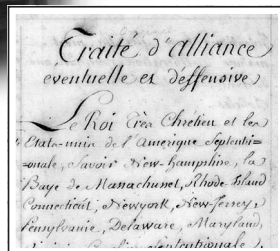 Traité d'alliance
eventuelle et déffensive
Le Roi Très Chretien et les
Etats-unis de l'Amerique Septentri=
=onale, Savoir New-hampshire, la
Baye de Massachusset, Rhode-Island
Connecticut, Newyork, New-Jersey,
Pennsylvanie, Delaware, Maryland,